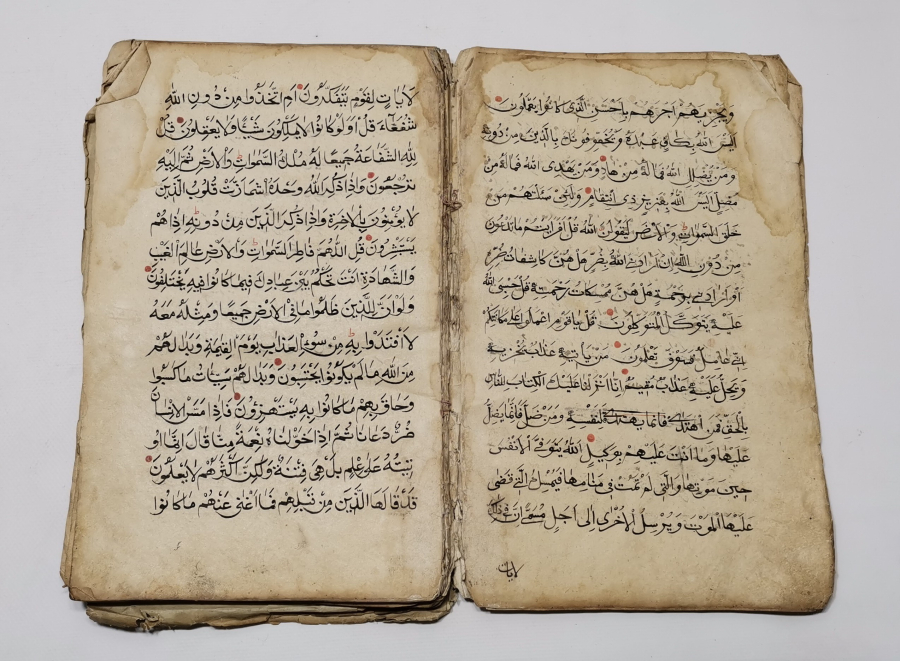 وَيَجْزِيَهُمْ اَجْرَهُمْ بِاَحْسَنِ الَّذِى كَانُوا يَعْمَلُونَ
اَلَيْسَ اللهُ بِكَافٍ عَبْدَهُ وَيُخَوِّفُونَكَ بِالَّذِينَ مِنْ دُونِهِ
وَمَنْ يُضْلِلِ اللهُ فَمَا لَهُ مِنْ هَادٍ وَمَنْ يَهْدِى اللهُ فَمَا لَهُ مِنْ
مُضِلٍّ اَلَيْسَ اللهُ بِعَزِيزٍ ذِى انْتِقَامٍ وَلَئِنْ سَاَلْتَهُمْ مَنْ
خَلَقَ السَّمٰوَاتِ وَالْاَرْضَ لَيَقُولُنَّ اللهُ قُلْ اَفَرَاَيْتُمْ مَا تَدْعُونَ
مِنْ دُونِ اللهِ اِنْ اَرَادَنِىَ اللهُ بِضُرٍّ هَلْ هُنَّ كَاشِفَاتُ ضُرِّهِ
اَوْ اَرَادَنِى بِرَحْمَةٍ هَلْ هُنَّ مُمْسِكَاتُ رَحْمَتِهِ قُلْ حَسْبِىَ اللهُ
عَلَيْهِ يَتَوَكَّلُ الْمُتَوَكِّلُونَ قُلْ يَا قَوْمِ اعْمَلُوا عَلٰى مَكَانَتِكُمْ
اِنِّى عَامِلٌ فَسَوْفَ تَعْلَمُونَ مَنْ يَاْتِيهِ عَذَابٌ يُخْزِيهِ
وَيَحِلُّ عَلَيْهِ عَذَابٌ مُقِيمٌ اِنَّا اَنْزَلْنَا عَلَيْكَ الْكِتَابَ لِلنَّاسِ
بِالْحَقِّ فَمَنِ اهْتَدٰى فَاِنَّمَا يَهْتَدِى لِنَفْسِهِ وَمَنْ ضَلَّ فَاِنَّمَا يَضِلُّ
عَلَيْهَا وَمَا اَنْتَ عَلَيْهِمْ بِوَكِيلٍ اَللهُ يَتَوَفَّى الْاَنْفُسَ
حِينَ مَوْتِهَا وَالَّتِى لَمْ تَمُتْ فِى مَنَامِهَا فَيُمْسِكُ الَّتِى قَضٰى
عَلَيْهَا الْمَوْتَ وَيُرْسِلُ الْاُخْرٰى اِلٰى اَجَلٍ مُسَمًّى اِنَّ فِى ذٰلِكَ
لايات
لَاٰيَاتٍ لِقَوْمٍ يَتَفَكَّرُونَ اَمِ اتَّخَذُوا مِنْ دُونِ اللهِ
شُفَعَاءَ قُلْ اَوَلَوْ كَانُوا لَا يَمْلِكُونَ شَيْئًا وَلَا يَعْقِلُونَ قُلْ
لِلّٰهِ الشَّفَاعَةُ جَمِيعًا لَهُ مُلْكُ السَّمٰوَاتِ وَالْاَرْضِ ثُمَّ اِلَيْهِ
تُرْجَعُونَ وَاِذَا ذُكِرَ اللهُ وَحْدَهُ اشْمَاَزَّتْ قُلُوبُ الَّذِينَ
لَا يُؤْمِنُونَ بِالْاٰخِرَةِ وَاِذَا ذُكِرَ الَّذِينَ مِنْ دُونِهِ اِذَا هُمْ
يَسْتَبْشِرُونَ قُلِ اللّٰهُمَّ فَاطِرَ السَّمٰوَاتِ وَالْاَرْضِ عَالِمَ الْغَيْبِ
وَالشَّهَادَةِ اَنْتَ تَحْكُمُ بَيْنَ عِبَادِكَ فِيمَا كَانُوا فِيهِ يَخْتَلِفُونَ
وَلَوْ اَنَّ لِلَّذِينَ ظَلَمُوا مَا فِى الْاَرْضِ جَمِيعًا وَمِثْلَهُ مَعَهُ
لَا افْتَدَوْا بِهِ مِنْ سُوءِ الْعَذَابِ يَوْمَ الْقِيٰمَةِ وَبَدَا لَهُمْ
مِنَ اللهِ مَا لَمْ يَكُونُوا يَحْتَسِبُونَ وَبَدَا لَهُمْ سَيِّئَاتُ مَا كَسَبُوا
وَحَاقَ بِهِمْ مَا كَانُوا بِهِ يَسْتَهْزِؤُنَ فَاِذَا مَسَّ الْاِنْسَانَ
ضُرٌّ دَعَانَا ثُمَّ اِذَا خَوَّلْنَاهُ نِعْمَةً مِنَّا قَالَ اِنَّمَا اُو
تِيتُهُ عَلٰى عِلْمٍ بَلْ هِىَ فِتْنَةٌ وَلٰكِنَّ اَكْثَرَهُمْ لَا يَعْلَمُونَ
قَدْ قَالَهَا الَّذِينَ مِنْ قَبْلِهِمْ فَمَا اَغْنٰى عَنْهُمْ مَا كَانُوا